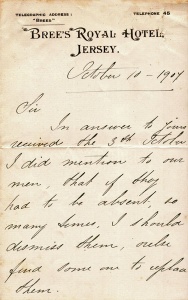 TELEGRAPHIC ADDRESS:
"BREES"
TELEPHONE 45
BREE'S ROYAL HOTEL,
JERSEY.
October 10 - 1904
Sir
In answer to yours
recieved the 3th October
I did mention to our
men, that if they
had to be absent, so
many times, I should
dismiss them, or else
find some one to replace
them.